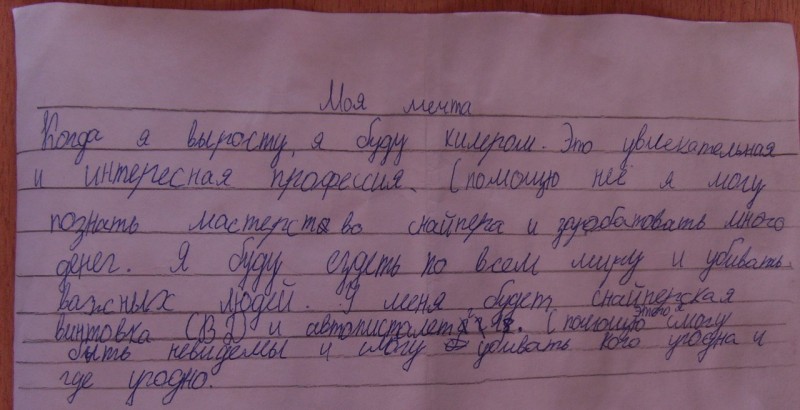 Моя мечта
Когда я выросту, я буду килером. Это увлекательная
и интересная професия. С помощю неё я могу
познать мастерство снайпера и заробатовать много
денег. Я буду ездеть по всем миру и убивать
важных людей. У меня будет снайперская
винтовка (ВЗ) и автопистолет. С помощю этого я смогу
быть невидемы и смогу убивать кого угодна и
где угодно.